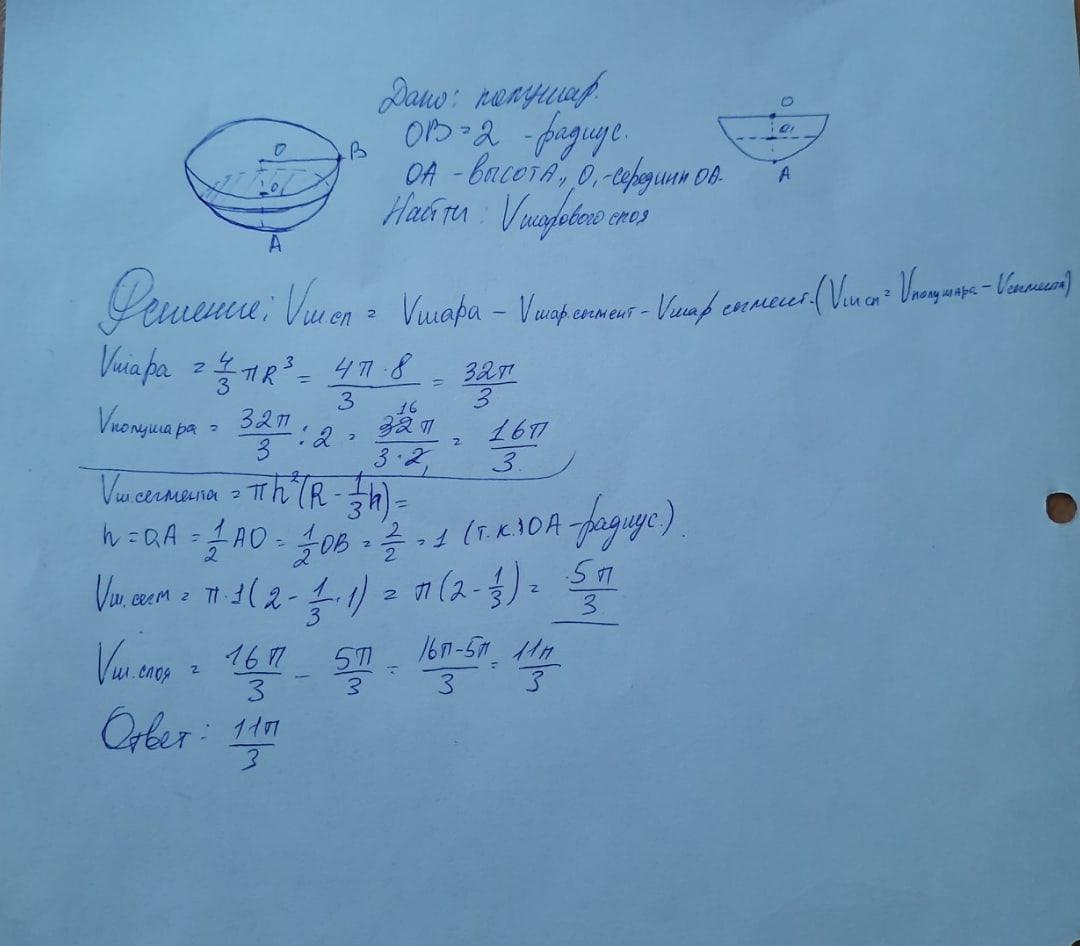 Дано: полушар.
OB = 2 - радиус.
OA - высота, O₁ - середина OA.
Найти: Vшарового слоя
O
B
O₁
A
O
O₁
A
Решение: Vш сл = Vшара - Vшар.сегмент - Vшар сегмент. (Vш сл = Vполушара - Vсегмента)
Vшара = 4/3 πR³ = 4π · 8 / 3 = 32π/3
Vполушара = 32π/3 : 2 = 32π/(3·2) 16 = 16π/3.
Vш.сегмента = πh²(R - 1/3 h) =
h = O₁A = 1/2 AO = 1/2 OB = 2/2 = 1 (т.к. OA - радиус.).
Vш.сегм = π·1(2 - 1/3 · 1) = π(2 - 1/3) = 5π/3
Vш.слоя = 16π/3 - 5π/3 = (16π-5π)/3 = 11π/3
Ответ: 11π/3